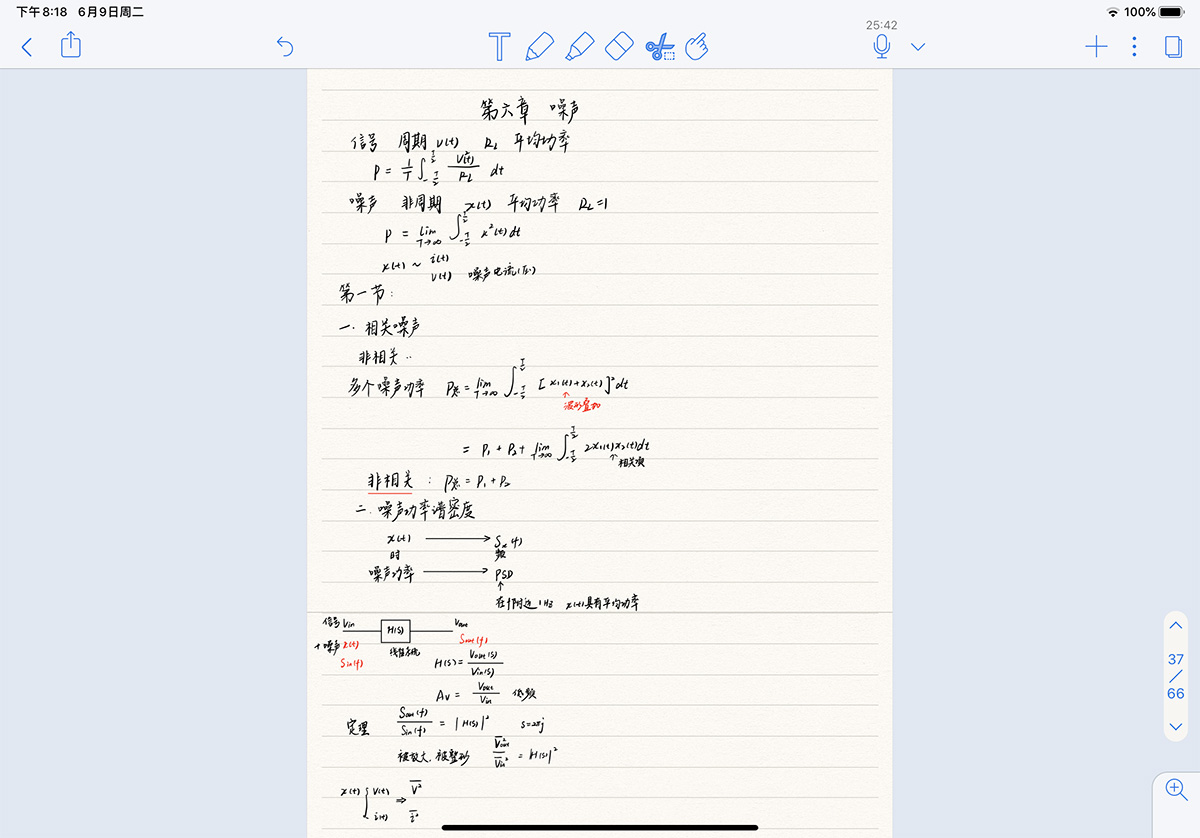 下午8:18 6月9日周二 100%
25:42
第六章 噪声
信号 周期 v(t) RL 平均功率
P = 1/T ∫_{-T/2}^{T/2} V²(t)/RL dt
噪声 非周期 x(t) 平均功率 RL=1
P = lim_{T→∞} ∫_{-T/2}^{T/2} x²(t)dt
x(t) ~ i(t)
v(t) 噪声电流(压)
第一节:
一. 相关噪声
非相关..
多个噪声功率 P总 = lim_{T→∞} ∫_{-T/2}^{T/2} [x₁(t)+x₂(t)]²dt
↑
波形叠加
= P₁ + P₂ + lim_{T→∞} ∫_{-T/2}^{T/2} 2x₁(t)x₂(t)dt
↑相关项
非相关 : P总 = P₁ + P₂
二. 噪声功率谱密度
x(t) → Sx(f)
时 频
噪声功率 → PSD
↑
在f附近1Hz x(t)具有平均功率
信号 Vin H(S) Vout
+ 噪声 x(t) 线性系统 Sout(f)
Sin(f)
H(S) = Vout(S)/Vin(S)
Av = Vout/Vin 低频
定理 Sout(f)/Sin(f) = |H(S)|² S=2πj
被放大, 被整形 V̅²out/V̅in² = |H(S)|²
x(t) { v(t) ⇒ V̅²
i(t) i̅²
37
66